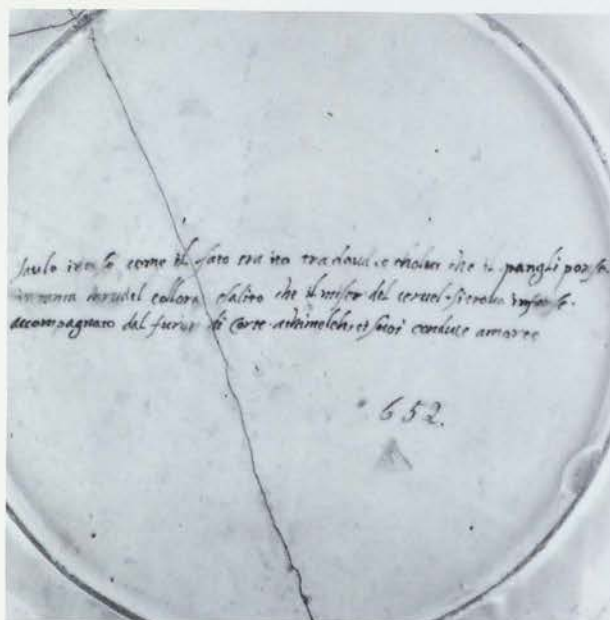 saulo inteso come il fato era ito tra david. e choluy che li panghi porse.
in tanta crudel collora e salito che il miser del cervel si trova
accompagnato dal furor di corte. achimelch et suoi conduce a morte
652.